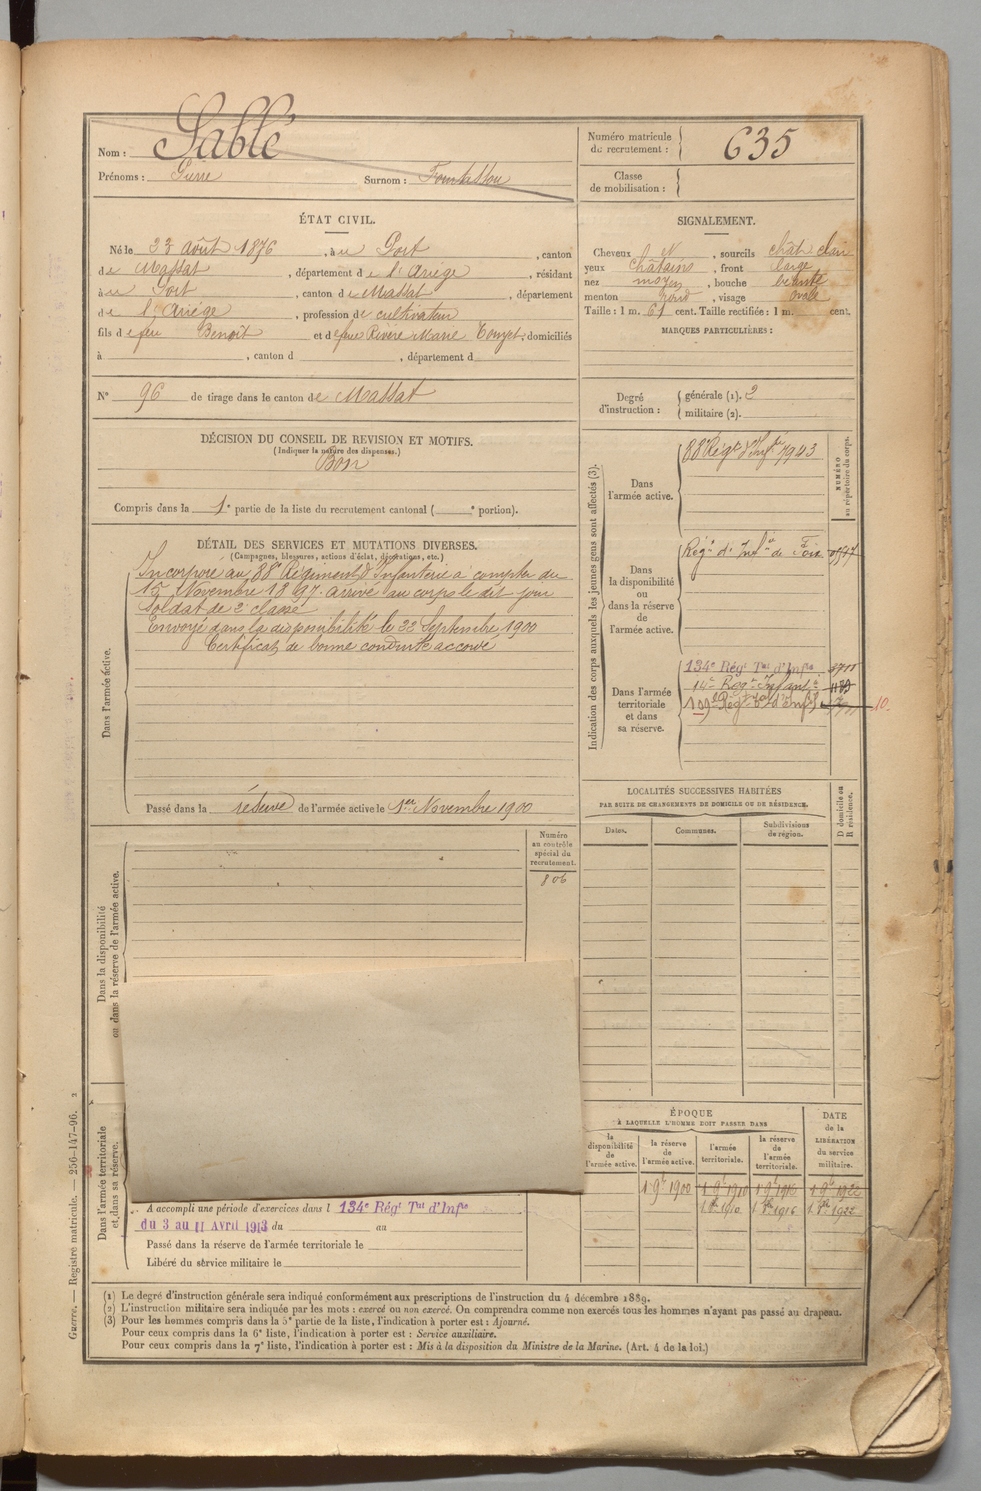 Nom : Sablé
Prénoms : Pierre Surnom :
Numéro matricule du recrutement : 635
Classe de mobilisation :
ÉTAT CIVIL.
Né le 23 Août 1876, à u Port, canton
de Massat, département de l'Ariège, résidant
à u Port, canton de Massat, département
de l'Ariège, profession de cultivateur
fils de feu Benoît et de feue Rivère Marie, domiciliés
à , canton d , département d
SIGNALEMENT.
Cheveux N, sourcils chât clair
yeux châtains, front large
nez moyen, bouche
menton rond, visage ovale
Taille : 1 m. 61 cent. Taille rectifiée : 1 m. cent.
MARQUES PARTICULIÈRES :
N° 96 de tirage dans le canton de Massat
Degré d'instruction : générale (1). 2
militaire (2).
DÉCISION DU CONSEIL DE REVISION ET MOTIFS.
(Indiquer la nature des dispenses.)
Bon
Compris dans la 1e partie de la liste du recrutement cantonal ( e portion).
DÉTAIL DES SERVICES ET MUTATIONS DIVERSES.
(Campagnes, blessures, actions d'éclat, décorations, etc.)
Dans l'armée active.
Incorporé au 88e Régiment d'Infanterie à compter du
15 Novembre 1897. arrivé au corps le dit jour
Soldat de 2e classe
Envoyé dans la disponibilité le 22 Septembre 1900
Certificat de bonne conduite accordé
Passé dans la réserve de l'armée active le 1er Novembre 1900
Indication des corps auxquels les jeunes gens sont affectés (3).
NUMÉRO au répertoire du corps.
Dans l'armée active.
88e Régt d'Infie 7943
Dans la disponibilité ou dans la réserve de l'armée active.
Régt d'Infie de Foix
Dans l'armée territoriale et dans sa réserve.
134e Régt Tal d'Infie
14e Régt Infant
Régt d'Inf
10
LOCALITÉS SUCCESSIVES HABITÉES
PAR SUITE DE CHANGEMENTS DE DOMICILE OU DE RÉSIDENCE.
Dates. Communes. Subdivisions de région. D domicile ou R résidence.
Dans la disponibilité ou dans la réserve de l'armée active.
Numéro au contrôle spécial du recrutement.
806
ÉPOQUE
À LAQUELLE L'HOMME DOIT PASSER DANS
la disponibilité de l'armée active. la réserve de l'armée active. l'armée territoriale. la réserve de l'armée territoriale.
DATE de la LIBÉRATION du service militaire.
1 9e 1900 1 9e 1910 1 9e 1916 1 9e 1922
1 8bre 1910 1 8bre 1916 1 8bre 1922
Dans l'armée territoriale et dans sa réserve.
A accompli une période d'exercices dans l 134e Régt Tal d'Infie
du 3 au 11 Avril 1913 du au
Passé dans la réserve de l'armée territoriale le
Libéré du service militaire le
(1) Le degré d'instruction générale sera indiqué conformément aux prescriptions de l'instruction du 4 décembre 1889.
(2) L'instruction militaire sera indiquée par les mots : exercé ou non exercé. On comprendra comme non exercés tous les hommes n'ayant pas passé au drapeau.
(3) Pour les hommes compris dans la 5e partie de la liste, l'indication à porter est : Ajourné.
Pour ceux compris dans la 6e liste, l'indication à porter est : Service auxiliaire.
Pour ceux compris dans la 7e liste, l'indication à porter est : Mis à la disposition du Ministre de la Marine. (Art. 4 de la loi.)
Guerre. — Registre matricule. — 256-147-96. 2